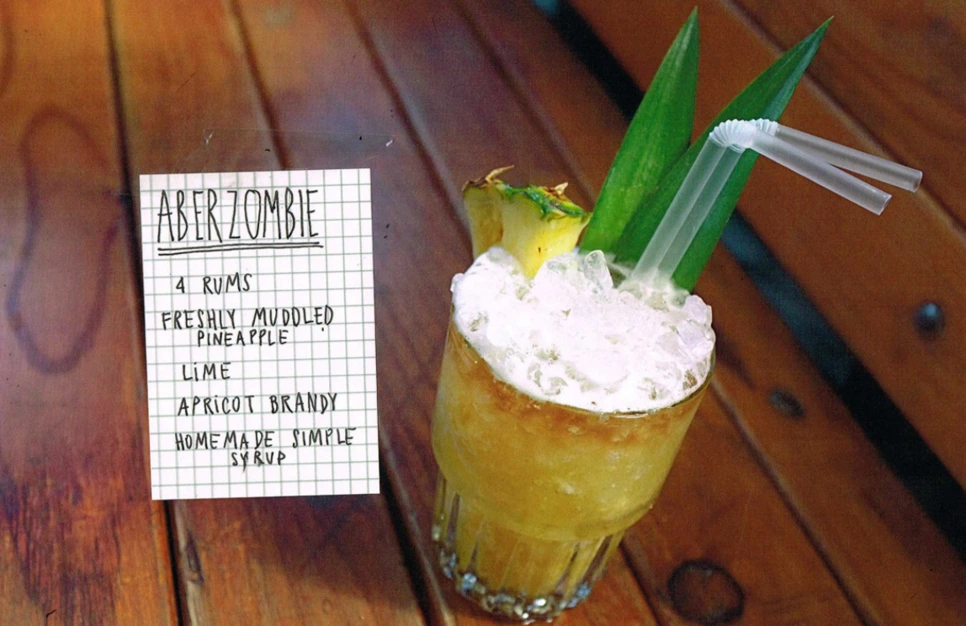 ABERZOMBIE
4 RUMS
FRESHLY MUDDLED
PINEAPPLE
LIME
APRICOT BRANDY
HOMEMADE SIMPLE
SYRUP